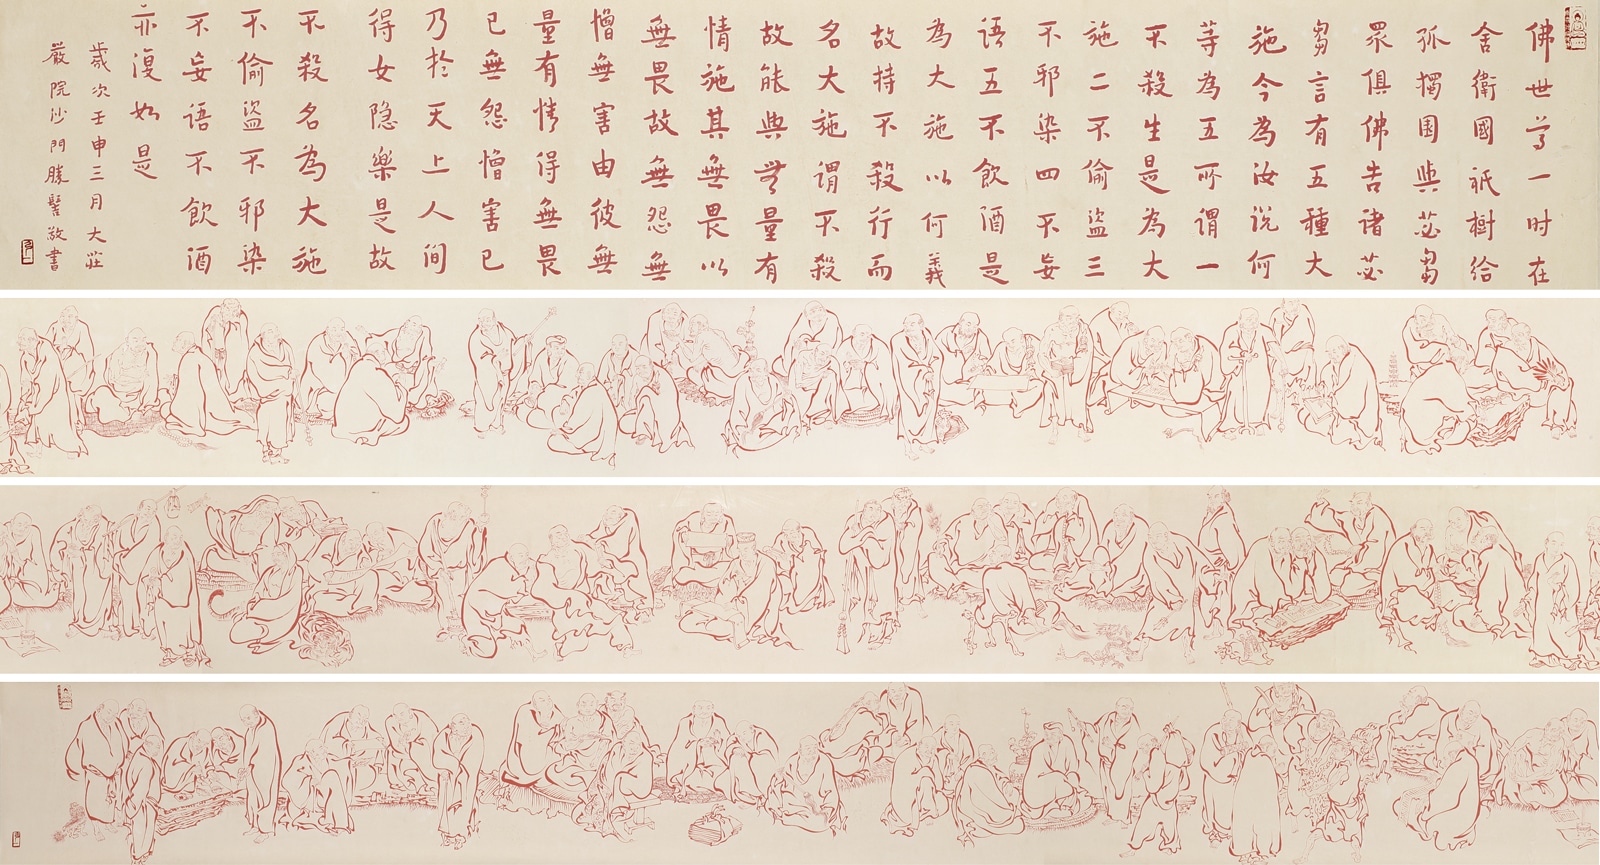 佛世尊一时在
舍衛國祇樹給
孤獨園與苾芻
眾俱佛告诸苾
芻言有五種大
施今為汝说何
等為五所谓一
不殺生是為大
施二不偷盜三
不邪染四不妄
语五不飲酒是
為大施以何義
故持不殺行而
名大施谓不殺
故能與無量有
情施其無畏以
無畏故無怨無
憎無害由彼無
量有情得無畏
已無怨憎害已
乃於天上人间
得女隐樂是故
不殺名為大施
不偷盜不邪染
不妄语不飲酒
亦復如是
歲次壬申三月大莊
嚴院沙門勝髻敬書